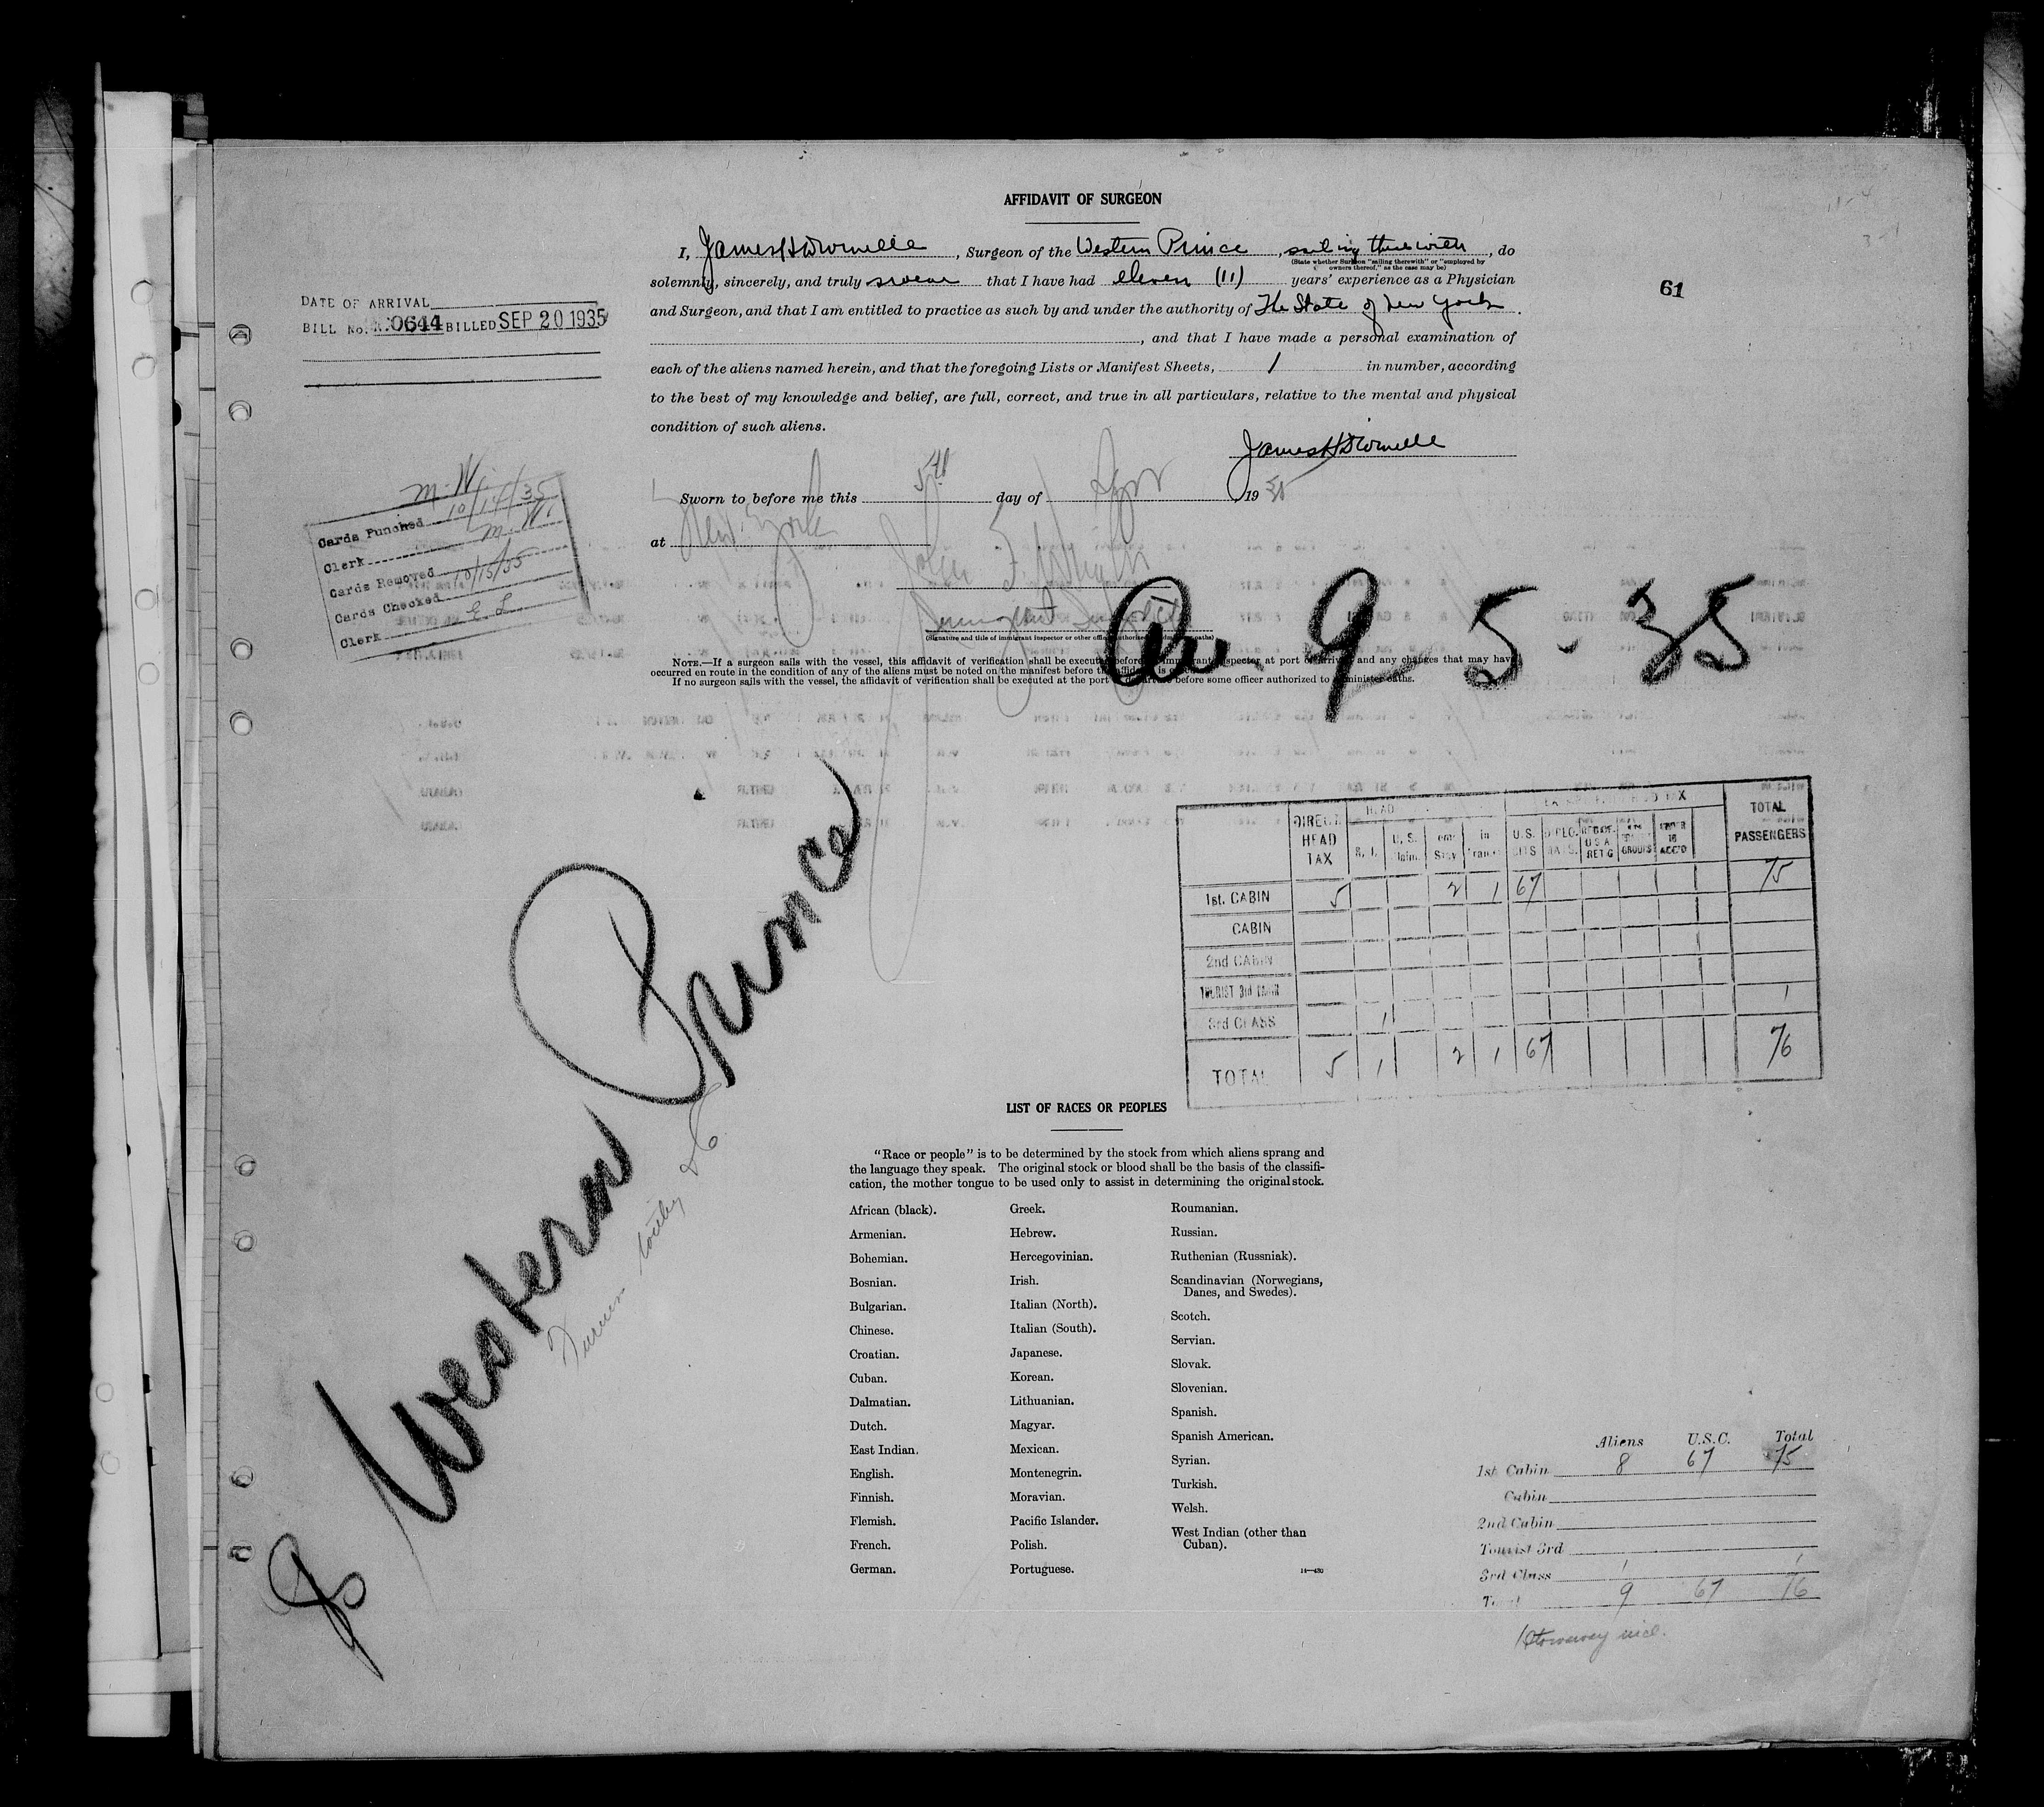 AFFIDAVIT OF SURGEON
I, James H , Surgeon of the Western Prince , sailing therewith , do
(State whether Surgeon "sailing therewith" or "employed by
owners thereof," as the case may be)
solemnly, sincerely, and truly swear that I have had eleven (11) years' experience as a Physician
and Surgeon, and that I am entitled to practice as such by and under the authority of The State of New York .
, and that I have made a personal examination of
each of the aliens named herein, and that the foregoing Lists or Manifest Sheets, 1 in number, according
to the best of my knowledge and belief, are full, correct, and true in all particulars, relative to the mental and physical
condition of such aliens.
James H
61
DATE OF ARRIVAL
BILL No. 0644 BILLED SEP 20 1935
Sworn to before me this 5th day of , 19 35
at New York
John F.
(Signature and title of immigrant inspector or other officer authorized to administer oaths)
M. W.
Cards Punched 10/14/35
Clerk M. W.
Cards Removed
Cards Checked 10/15/35
Clerk C. L.
9 - 5 - 35
NOTE.—If a surgeon sails with the vessel, this affidavit of verification shall be executed before immigrant inspector at port of arrival and any changes that may have
occurred en route in the condition of any of the aliens must be noted on the manifest before the affidavit is
If no surgeon sails with the vessel, the affidavit of verification shall be executed at the port before some officer authorized to administer oaths.
Western Prince
Furness
DIRECT HEAD TAX
HEAD
TAX
TOTAL PASSENGERS
U. S. Claim.
U.S. CITS
1st. CABIN 5 2 1 67 75
CABIN
2nd CABIN
TOURIST 3rd
3rd CLASS 1 1
TOTAL 5 1 2 1 67 76
LIST OF RACES OR PEOPLES
"Race or people" is to be determined by the stock from which aliens sprang and
the language they speak. The original stock or blood shall be the basis of the classifi-
cation, the mother tongue to be used only to assist in determining the original stock.
African (black).
Armenian.
Bohemian.
Bosnian.
Bulgarian.
Chinese.
Croatian.
Cuban.
Dalmatian.
Dutch.
East Indian.
English.
Finnish.
Flemish.
French.
German.
Greek.
Hebrew.
Hercegovinian.
Irish.
Italian (North).
Italian (South).
Japanese.
Korean.
Lithuanian.
Magyar.
Mexican.
Montenegrin.
Moravian.
Pacific Islander.
Polish.
Portuguese.
Roumanian.
Russian.
Ruthenian (Russniak).
Scandinavian (Norwegians,
Danes, and Swedes).
Scotch.
Servian.
Slovak.
Slovenian.
Spanish.
Spanish American.
Syrian.
Turkish.
Welsh.
West Indian (other than
Cuban).
14—480
Aliens U.S.C. Total
1st Cabin 8 67 75
Cabin
2nd Cabin
Tourist 3rd
3rd Class 1 1
Total 9 67 76
1 Stowaway incl.